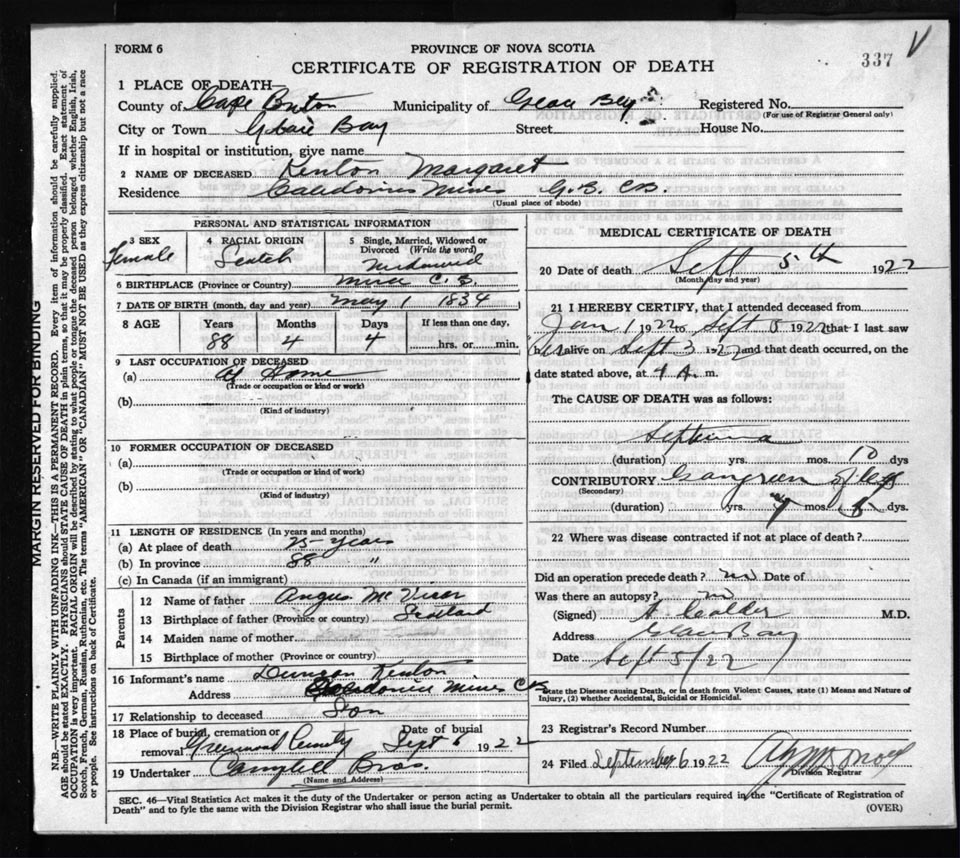 FORM 6
PROVINCE OF NOVA SCOTIA
337
CERTIFICATE OF REGISTRATION OF DEATH
1 PLACE OF DEATH—
County of Cape Breton Municipality of Glace Bay Registered No.
(For use of Registrar General only)
City or Town Glace Bay Street House No.
If in hospital or institution, give name
2 NAME OF DECEASED Kenton Margaret
Residence Caledonia Mines G.B. C.B.
(Usual place of abode)
PERSONAL AND STATISTICAL INFORMATION
3 SEX
Female
4 RACIAL ORIGIN
Scotch
5 Single, Married, Widowed or Divorced (Write the word)
Widowed
6 BIRTHPLACE (Province or Country) Mira C.B.
7 DATE OF BIRTH (month, day and year) May 1 1834
8 AGE Years Months Days If less than one day,
88 4 4 hrs. or min.
9 LAST OCCUPATION OF DECEASED
(a) At Home
(Trade or occupation or kind of work)
(b)
(Kind of industry)
10 FORMER OCCUPATION OF DECEASED
(a)
(Trade or occupation or kind of work)
(b)
(Kind of industry)
11 LENGTH OF RESIDENCE (In years and months)
(a) At place of death 25 years
(b) In province 88 "
(c) In Canada (if an immigrant)
Parents
12 Name of father Angus
13 Birthplace of father (Province or country) Scotland
14 Maiden name of mother
15 Birthplace of mother (Province or country)
16 Informant's name Duncan Kenton
Address Caledonia Mines C.B.
17 Relationship to deceased Son
18 Place of burial, cremation or removal Greenwood Date of burial Sept 6 1922
19 Undertaker Campbell Bros.
(Name and Address)
MEDICAL CERTIFICATE OF DEATH
20 Date of death Sept 5th 1922
(Month, day and year)
21 I HEREBY CERTIFY, that I attended deceased from
Jan 1 1922 to Sept 5 1922 that I last saw
her alive on Sept 3 1922 and that death occurred, on the
date stated above, at 4 A. m.
The CAUSE OF DEATH was as follows:
(duration) yrs. mos. 10 dys
CONTRIBUTORY Gangreen of leg
(Secondary)
(duration) yrs. mos. dys.
22 Where was disease contracted if not at place of death?
Did an operation precede death? no Date of
Was there an autopsy? no
(Signed) A Calder M.D.
Address Glace Bay
Date Sept 5/22
State the Disease causing Death, or in death from Violent Causes, state (1) Means and Nature of
Injury, (2) whether Accidental, Suicidal or Homicidal.
23 Registrar's Record Number
24 Filed September 6 1922
Division Registrar
SEC. 46—Vital Statistics Act makes it the duty of the Undertaker or person acting as Undertaker to obtain all the particulars required in the "Certificate of Registration of
Death" and to fyle the same with the Division Registrar who shall issue the burial permit.
(OVER)
MARGIN RESERVED FOR BINDING
N.B.—WRITE PLAINLY WITH UNFADING INK—THIS IS A PERMANENT RECORD. Every item of information should be carefully supplied.
AGE should be stated EXACTLY. PHYSICIANS should STATE CAUSE OF DEATH in plain terms, so that it may be properly classified. Exact statement of
OCCUPATION is very important. RACIAL ORIGIN will be described by stating to what people or tongue the deceased person belonged whether English, Irish,
Scotch, French, German, Russian, Ruthenian, etc. The terms "AMERICAN" OR "CANADIAN" MUST NOT BE USED as they express citizenship but not a race
or people. See instructions on back of Certificate.